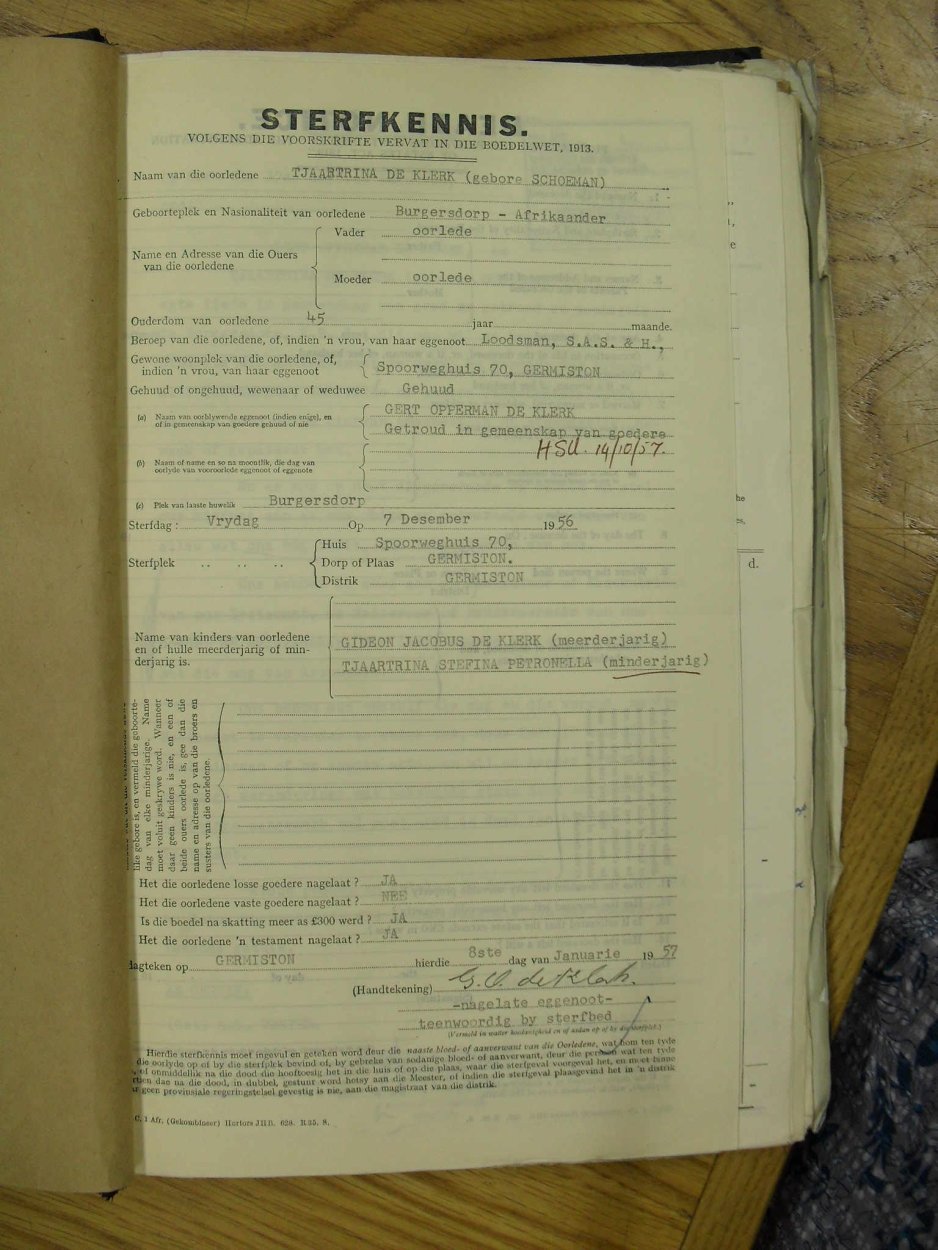 STERFKENNIS.
VOLGENS DIE VOORSKRIFTE VERVAT IN DIE BOEDELWET, 1913.
Naam van die oorledene TJAARTRINA DE KLERK (gebore SCHOEMAN)
Geboorteplek en Nasionaliteit van oorledene Burgersdorp - Afrikaander
Name en Adresse van die Ouers van die oorledene
Vader oorlede
Moeder oorlede
Ouderdom van oorledene 45 jaar maande.
Beroep van die oorledene, of, indien 'n vrou, van haar eggenoot Loodsman, S.A.S. & H.,
Gewone woonplek van die oorledene, of,
indien 'n vrou, van haar eggenoot Spoorweghuis 70, GERMISTON
Gehuud of ongehuud, wewenaar of weduwee Gehuud
(a) Naam van oorblywende eggenoot (indien enige), en GERT OPPERMAN DE KLERK
of in gemeenskap van goedere gehuud of nie Getroud in gemeenskap van goedere
HSU. 14/10/57.
(b) Naam of name en so na moontlik, die dag van
oorlyde van vooroorlede eggenoot of eggenote
(c) Plek van laaste huwelik Burgersdorp
Sterfdag : Vrydag Op 7 Desember 1956
Sterfplek .. .. ..
Huis Spoorweghuis 70,
Dorp of Plaas GERMISTON.
Distrik GERMISTON
Name van kinders van oorledene
en of hulle meerderjarig of min-
derjarig is.
GIDEON JACOBUS DE KLERK (meerderjarig)
TJAARTRINA STEFINA PETRONELLA (minderjarig)
like gebore is, en vermeld die geboorte-
dag van elke minderjarige. Name
moet voluit geskrywe word. Wanneer
daar geen kinders is nie, en een of
beide ouers oorlede is, gee dan die
name en adresse op van die broers en
susters van die oorledene.
Het die oorledene losse goedere nagelaat ? JA
Het die oorledene vaste goedere nagelaat ? NEE
Is die boedel na skatting meer as £300 werd ? JA
Het die oorledene 'n testament nagelaat ? JA
agteken op GERMISTON hierdie 8ste dag van Januarie 1957
(Handtekening) G. O. de Klerk.
-nagelate eggenoot-
teenwoordig by sterfbed
(Vermeld in watter hoedanigheid en of aldan op of by die sterfplek.)
Hierdie sterfkennis moet ingevul en geteken word deur die naaste bloed- of aanverwant van die Oorledene, wat hom ten tyde
die oorlyde op of by die sterfplek bevind of, by gebreke van sodanige bloed- of aanverwant, deur die persoon wat ten tyde
of onmiddelik na die dood die hooftoesig het in die huis of op die plaas, waar die sterfgeval voorgeval het, en moet binne
dae na die dood, in dubbel, gestuur word hetsy aan die Meester, of indien die sterfgeval plaasgevind het in 'n distrik
geen provinsiale regeringstelsel gevestig is nie, aan die magistraat van die distrik.
C. 1 Afr. (Gekombineer) Hortors JHB. 628. R35. 8.